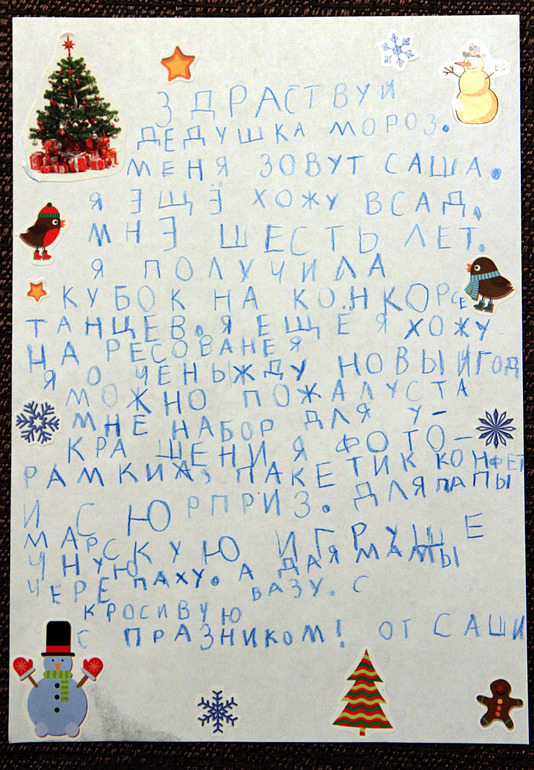 ЗДРАСТВУЙ
ДЕДУШКА МОРОЗ.
МЕНЯ ЗОВУТ САША.
Я ЕЩЁ ХОЖУ ВСАД,
МНЕ ШЕСТЬ ЛЕТ.
Я ПОЛУЧИЛА
КУБОК НА КОНКОРСЕ
ТАНЦЕВ. Я ЕЩЁ Я ХОЖУ
НА РЕСОВАНЕЯ
Я О ЧЕНЬЖДУ НОВЫЙГОД
МОЖНО ПОЖАЛУСТА
МНЕ НАБОР ДЛЯ У-
КРАШЕНИЯ ФОТО-
РАМКИ, ПАКЕТИК КОНФЕТ
И СЮРПРИЗ. ДЛЯ ПАПЫ
МАРСКУЮ ИГРУШЕ
ЧНУЮ
ЧЕРЕПАХУ. А ДЛЯ МАМЫ
ВАЗУ. С
КРОСИВУЮ
С ПРАЗНИКОМ! ОТ САШИ